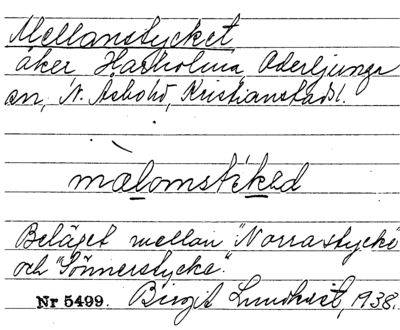 Mellanstycket
åker, Harholma, Oderljunga
sn, N. Åsbohd, Kristianstads l.
mælomstékəd
Beläget mellan "Norrastycke"
och "Sönnerstycke".
Nr 5499. Birgit Lundkvist, 1938.